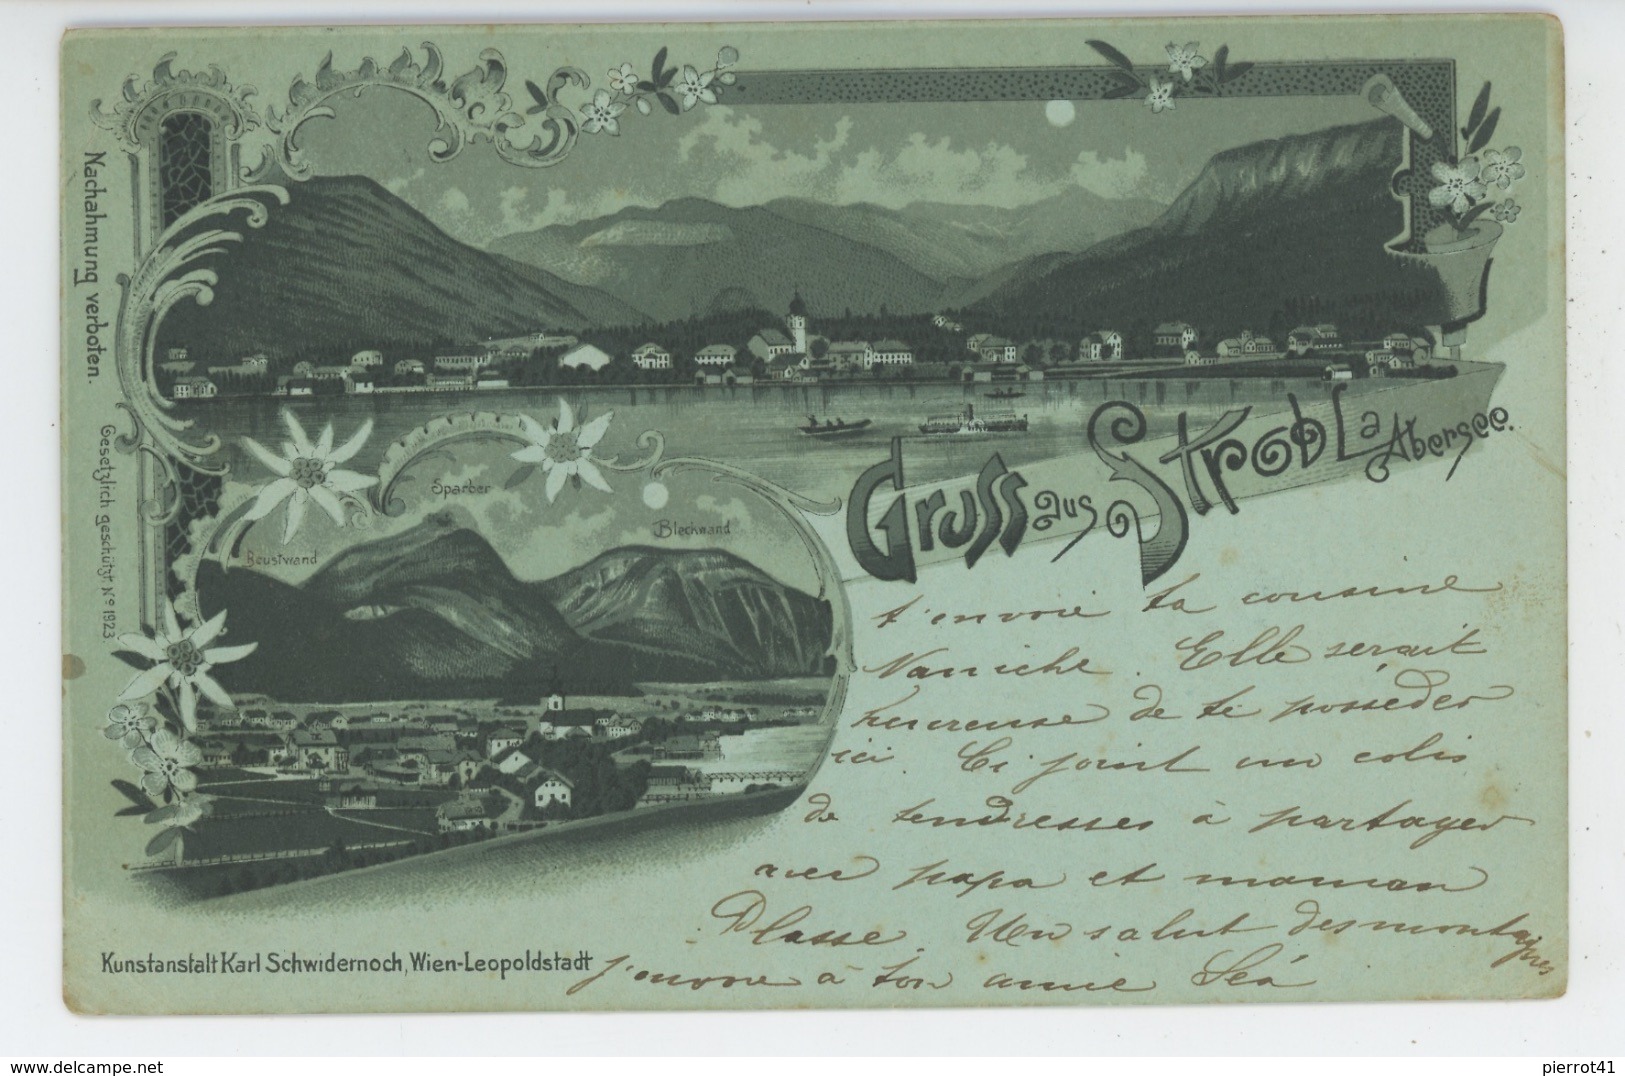 Nachahmung verboten.
Gesetzlich geschützt No 1923.
Sparber
Bleckwand
Beustwand
Gruss aus Strobl a Abersee.
t'envoie ta cousine
Naniche. Elle serait
heureuse de te posséder
ici. Ci joint un colis
de tendresses à partager
avec papa et maman
Un salut des montagnes
j'envoie à ton amie Léa
Kunstanstalt Karl Schwidernoch, Wien-Leopoldstadt
pierrot41